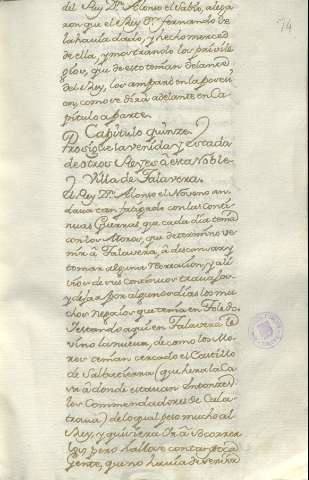 74
del Rey Dn. Alonso el Sabio, alega
ron que el Rey Dn. fernando se
la havia dado, y hecho merced
de ella, y mostrando los privile
gios, que de esto tenían
del Rey, los amparó en la posesi
on, como se dirá adelante en Ca
pitulo aparte.
Capitulo quinze.
Prosigue la venida y estada
de otros Reyes à esta Noble
Villa de Talavera.
El Rey Dn. Alonso el Noveno an
dava tan fatigado con las conti
nuas Guerras que cada dia tenia
con los Moros, que determinó ve
nir à Talavera, à descansar, y
tomar alguna recreacion, y ali
vio de sus continuos travajos
y dejar por algunos dias los mu
chos negocios que tenia en Toledo.
Y estando aqui en Talavera le
vino la nueva, de como los Mo
ros tenian cercado el Castillo
de Salbatierra (que hera la Ca
va à donde estavan entonces
los Commendadores de Cala
trava) de lo qual peso mucho al
Rey, y quisiera Ir à Socorrer
los pero hallavase con tan poca
gente, que no havia de